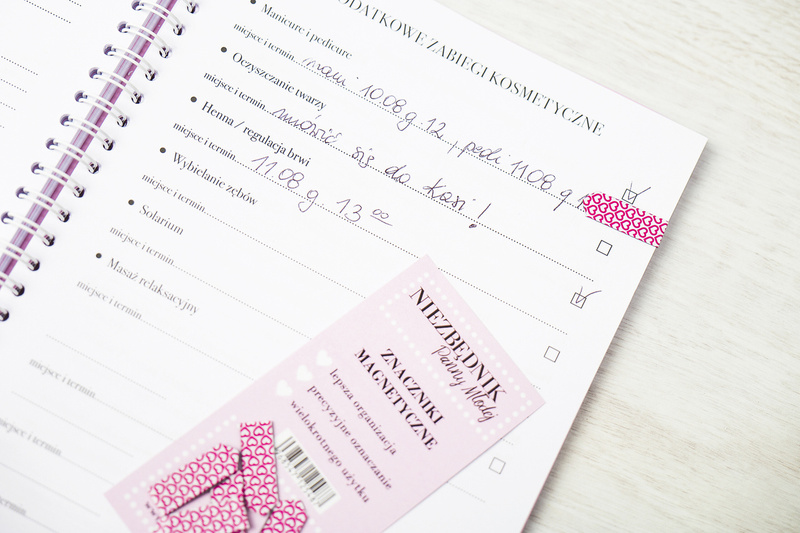 ODATKOWE ZABIEGI KOSMETYCZNE
Manicure i pedicure
miejsce i termin... mani 10.08 g. 12, pedi 11.08 g.
Oczyszczanie twarzy
miejsce i termin... umówić się do Kasi!
Henna / regulacja brwi
miejsce i termin... 11.08 g. 13 00
Wybielanie zębów
miejsce i termin...
Solarium
miejsce i termin...
Masaż relaksacyjny
miejsce i termin...
miejsce i termin...
miejsce i termin...
NIEZBĘDNIK
Panny Młodej
ZNACZNIKI
MAGNETYCZNE
lepsza organizacja
precyzyjne oznaczanie
wielokrotnego użytku